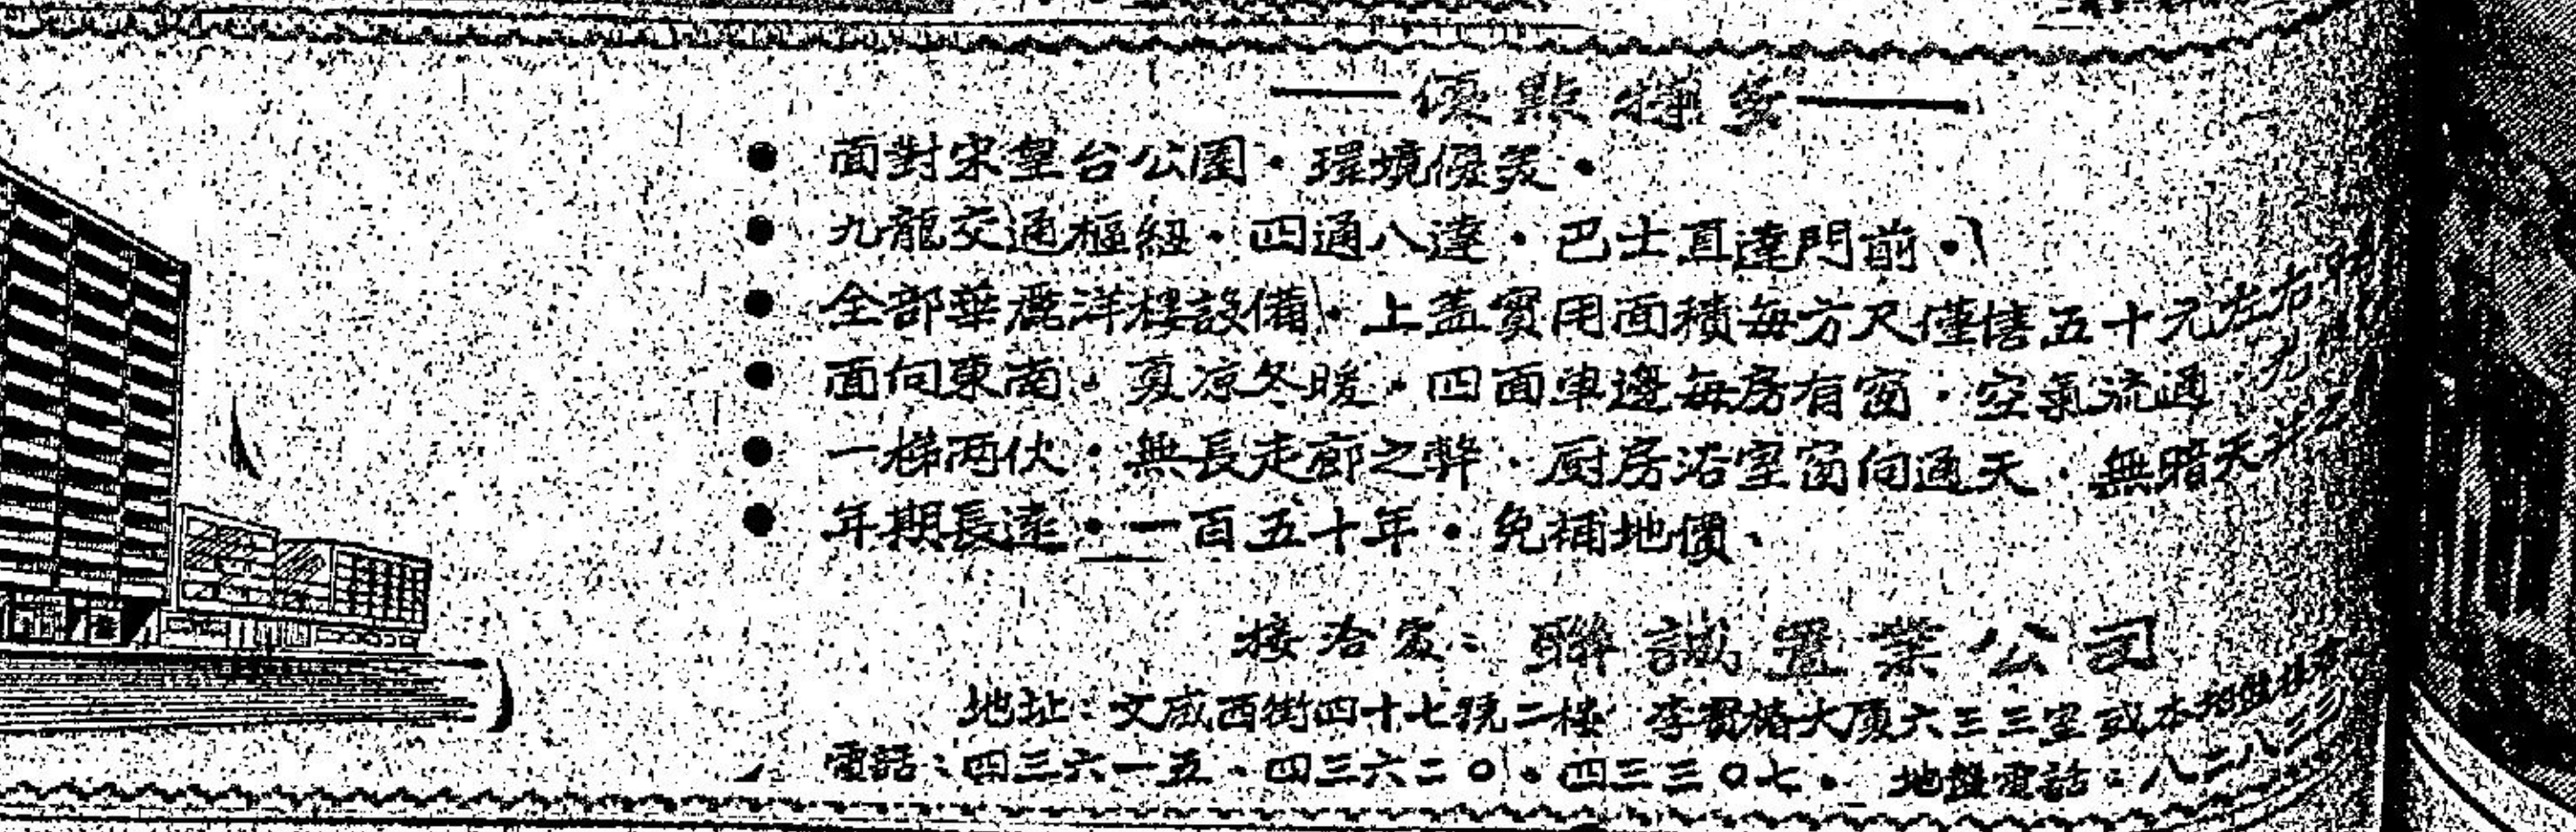 ——優點特多——
● 面對宋皇台公園·環境優美·
● 九龍交通樞紐·四通八達·巴士直達門前·
● 全部華麗洋樓設備·上蓋實用面積每方尺僅售五十元左右
● 面向東南·夏凉冬暖·四面単邊每房有窗·空氣流通
● 一梯両伙·無長走廊之弊·厨房浴室窗向通天·無暗天井
● 年期長遠·一百五十年·免補地價·
接洽處：聯誠置業公司
地址：文咸西街四十七號二樓 李寶椿大厦六三三室或本地盤
電話：四三六一五·四三六二〇·四三三〇七· 地盤電話：八二八三